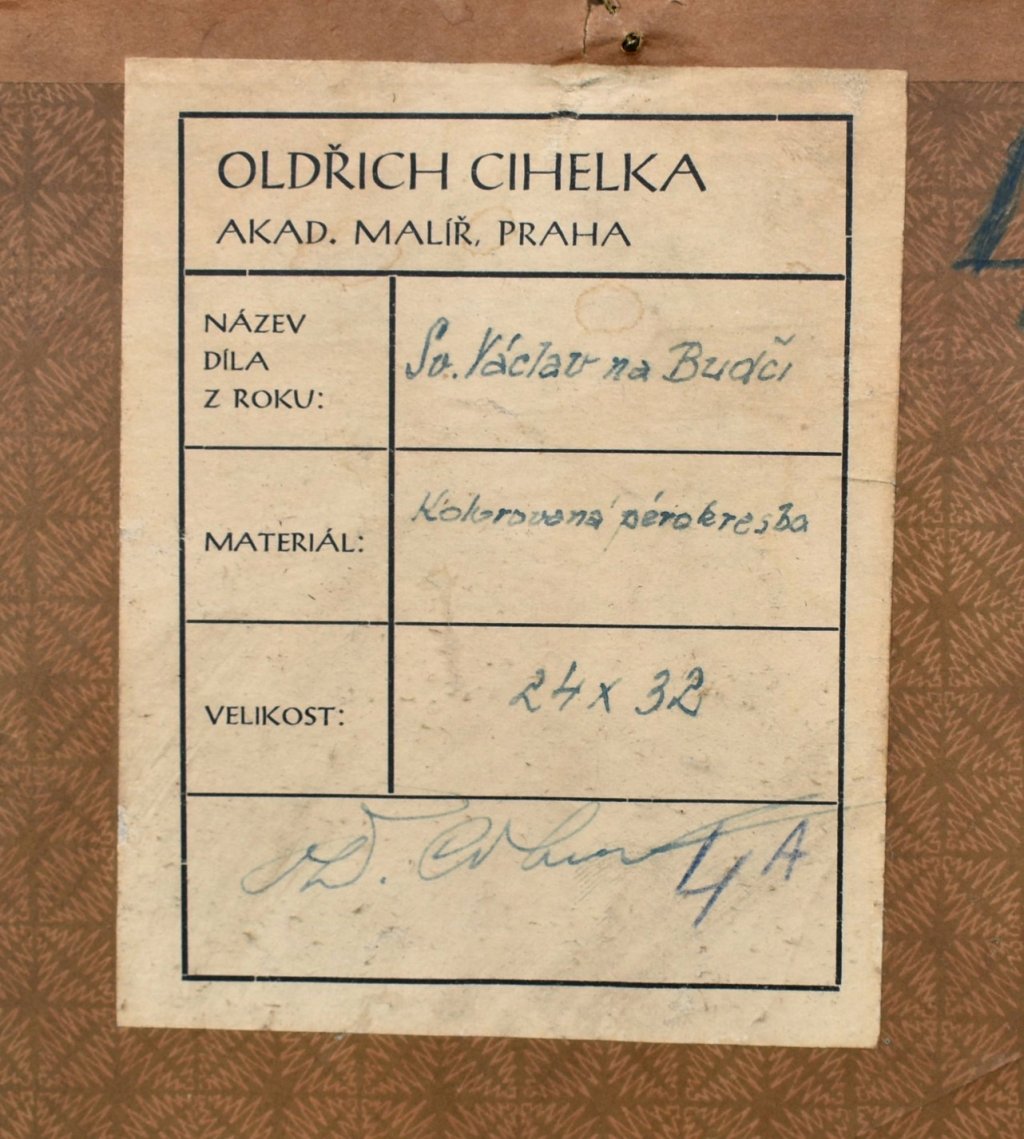 OLDŘICH CIHELKA
AKAD. MALÍŘ, PRAHA
NÁZEV
DÍLA
Z ROKU:
Sv. Václav na Budči
MATERIÁL:
Kolorovaná pérokresba
VELIKOST:
24 x 32
4A